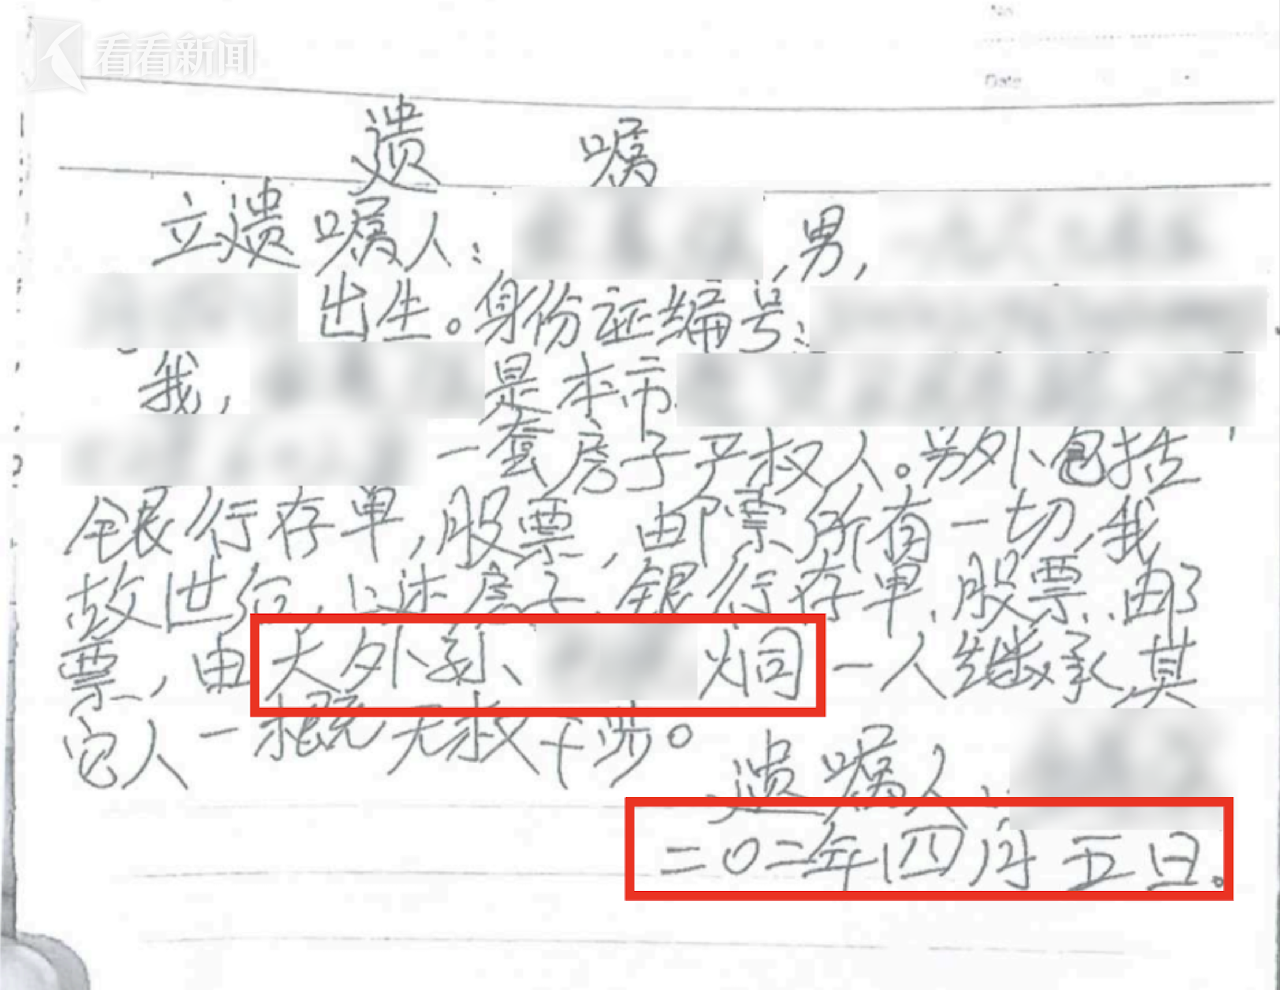 看看新闻
No
Date
遗 嘱
立遗嘱人: ,男,
出生。身份证编号:
我, 是本市
一套房子产权人。另外包括
银行存单,股票,邮票所有一切,我
故世后,上述房子、银行存单,股票,邮
票,由大外孙 炯一人继承其
它人一概无权干涉。
遗嘱人:
二〇二年四月五日。